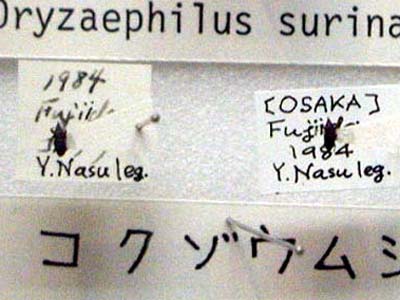 Oryzaephilus surina
1984
Fujiid
Y. Nasu leg.
[OSAKA]
Fujiid
1984
Y. Nasu leg.
コクゾウムシ